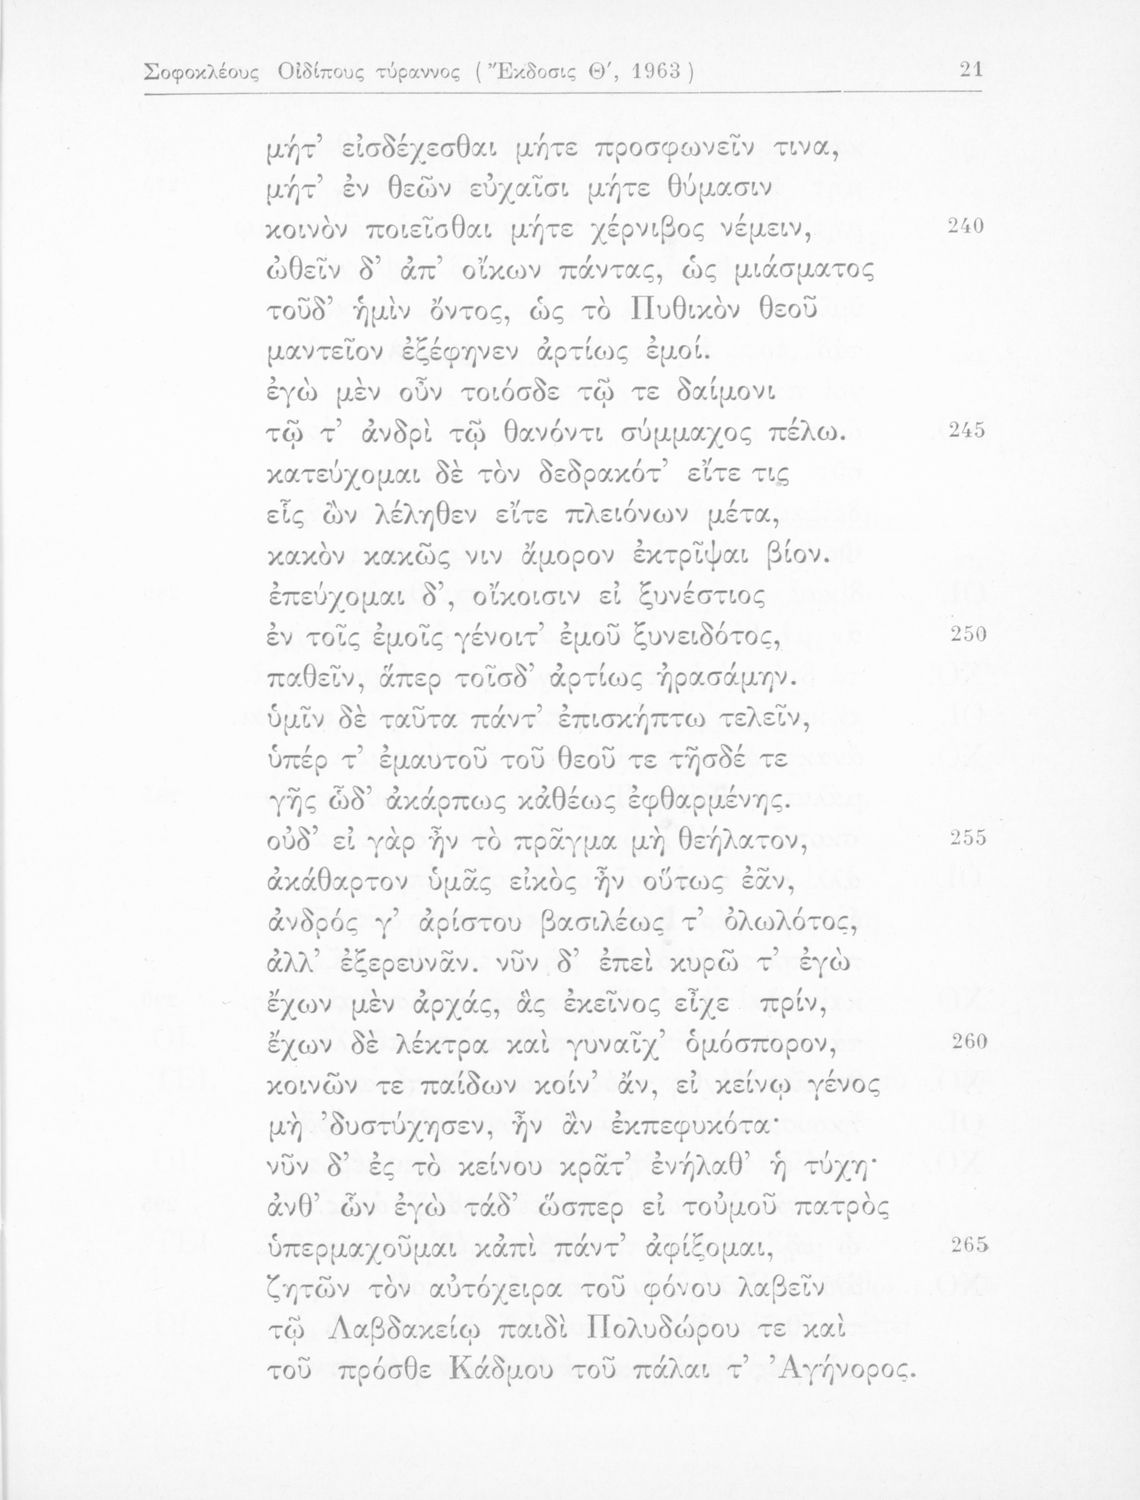 Σοφοκλέους Οἰδίπους τύραννος ( Ἔκδοσις Θ′, 1963 ) 21
μήτ’ εἰσδέχεσθαι μήτε προσφωνεῖν τινα,
μήτ’ ἐν θεῶν εὐχαῖσι μήτε θύμασιν
κοινὸν ποιεῖσθαι μήτε χέρνιβος νέμειν, 240
ὠθεῖν δ’ ἀπ’ οἴκων πάντας, ὡς μιάσματος
τοῦδ’ ἡμὶν ὄντος, ὡς τὸ Πυθικὸν θεοῦ
μαντεῖον ἐξέφηνεν ἀρτίως ἐμοί.
ἐγὼ μὲν οὖν τοιόσδε τῷ τε δαίμονι
τῷ τ’ ἀνδρὶ τῷ θανόντι σύμμαχος πέλω. 245
κατεύχομαι δὲ τὸν δεδρακότ’ εἴτε τις
εἷς ὢν λέληθεν εἴτε πλειόνων μέτα,
κακὸν κακῶς νιν ἄμορον ἐκτρῖψαι βίον.
ἐπεύχομαι δ’, οἴκοισιν εἰ ξυνέστιος
ἐν τοῖς ἐμοῖς γένοιτ’ ἐμοῦ ξυνειδότος, 250
παθεῖν, ἅπερ τοῖσδ’ ἀρτίως ἠρασάμην.
ὑμῖν δὲ ταῦτα πάντ’ ἐπισκήπτω τελεῖν,
ὑπέρ τ’ ἐμαυτοῦ τοῦ θεοῦ τε τῆσδέ τε
γῆς ὧδ’ ἀκάρπως κἀθέως ἐφθαρμένης.
οὐδ’ εἰ γὰρ ἦν τὸ πρᾶγμα μὴ θεήλατον, 255
ἀκάθαρτον ὑμᾶς εἰκὸς ἦν οὕτως ἐᾶν,
ἀνδρός γ’ ἀρίστου βασιλέως τ’ ὀλωλότος,
ἀλλ’ ἐξερευνᾶν. νῦν δ’ ἐπεὶ κυρῶ τ’ ἐγὼ
ἔχων μὲν ἀρχάς, ἃς ἐκεῖνος εἶχε πρίν,
ἔχων δὲ λέκτρα καὶ γυναῖχ’ ὁμόσπορον, 260
κοινῶν τε παίδων κοίν’ ἄν, εἰ κείνῳ γένος
μὴ ’δυστύχησεν, ἦν ἂν ἐκπεφυκότα·
νῦν δ’ ἐς τὸ κείνου κρᾶτ’ ἐνήλαθ’ ἡ τύχη·
ἀνθ’ ὧν ἐγὼ τάδ’ ὥσπερ εἰ τοὐμοῦ πατρὸς
ὑπερμαχοῦμαι κἀπὶ πάντ’ ἀφίξομαι, 265
ζητῶν τὸν αὐτόχειρα τοῦ φόνου λαβεῖν
τῷ Λαβδακείῳ παιδὶ Πολυδώρου τε καὶ
τοῦ πρόσθε Κάδμου τοῦ πάλαι τ’ Ἀγήνορος.